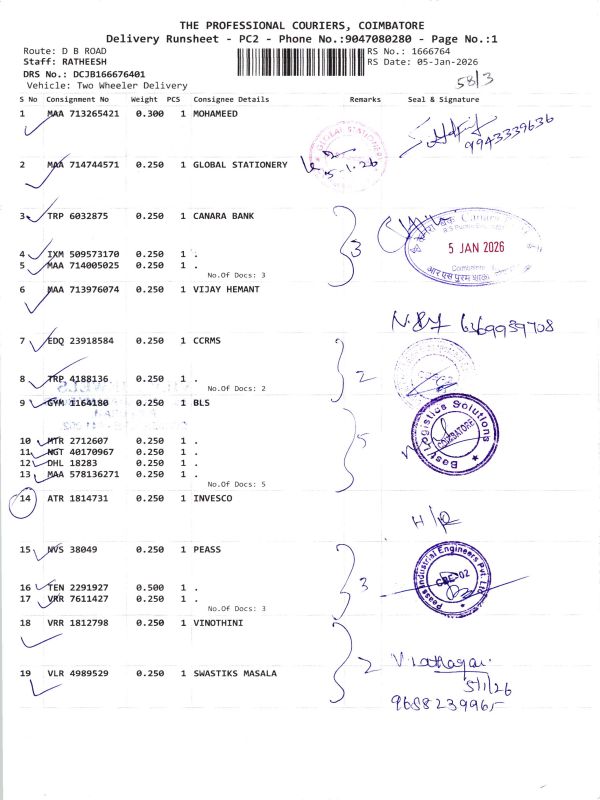 THE PROFESSIONAL COURIERS, COIMBATORE
Delivery Runsheet - PC2 - Phone No.:9047080280 - Page No.:1
Route: D B ROAD
RS No.: 1666764
Staff: RATHEESH
RS Date: 05-Jan-2026
DRS No.: DCJB166676401
58/3
Vehicle: Two Wheeler Delivery
S No Consignment No Weight PCS Consignee Details Remarks Seal & Signature
1 MAA 713265421 0.300 1 MOHAMEED
9943339636
2 MAA 714744571 0.250 1 GLOBAL STATIONERY
5-1-26
3 TRP 6032875 0.250 1 CANARA BANK
3
5 JAN 2026
4 IXM 509573170 0.250 1 .
5 MAA 714005025 0.250 1 .
No.Of Docs: 3
6 MAA 713976074 0.250 1 VIJAY HEMANT
6369939708
7 EDQ 23918584 0.250 1 CCRMS
2
8 TRP 4188136 0.250 1 .
No.Of Docs: 2
9 GYM 1164180 0.250 1 BLS
5
Best Logistics Solutions
COIMBATORE
10 MTR 2712607 0.250 1 .
11 NGT 40170967 0.250 1 .
12 DHL 18283 0.250 1 .
13 MAA 578136271 0.250 1 .
No.Of Docs: 5
14 ATR 1814731 0.250 1 INVESCO
15 NVS 38049 0.250 1 PEASS
3
Peass Industrial Engineers Pvt. Ltd
16 TEN 2291927 0.500 1 .
17 VRR 7611427 0.250 1 .
No.Of Docs: 3
18 VRR 1812798 0.250 1 VINOTHINI
2
19 VLR 4989529 0.250 1 SWASTIKS MASALA
5/1/26
9658239965